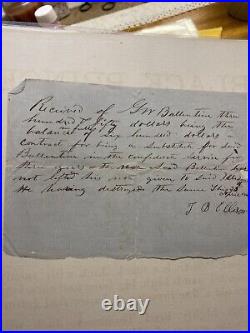 Received of GW Ballentine three
hundred & fifty dollars being the
balance in full of six hundred dollars
contract for being a Substitute for Said
Ballentine in the confederate Service for
three years or the war Said Ballentine
not lifted this not given to Said
He having destroyed the Same This
T B